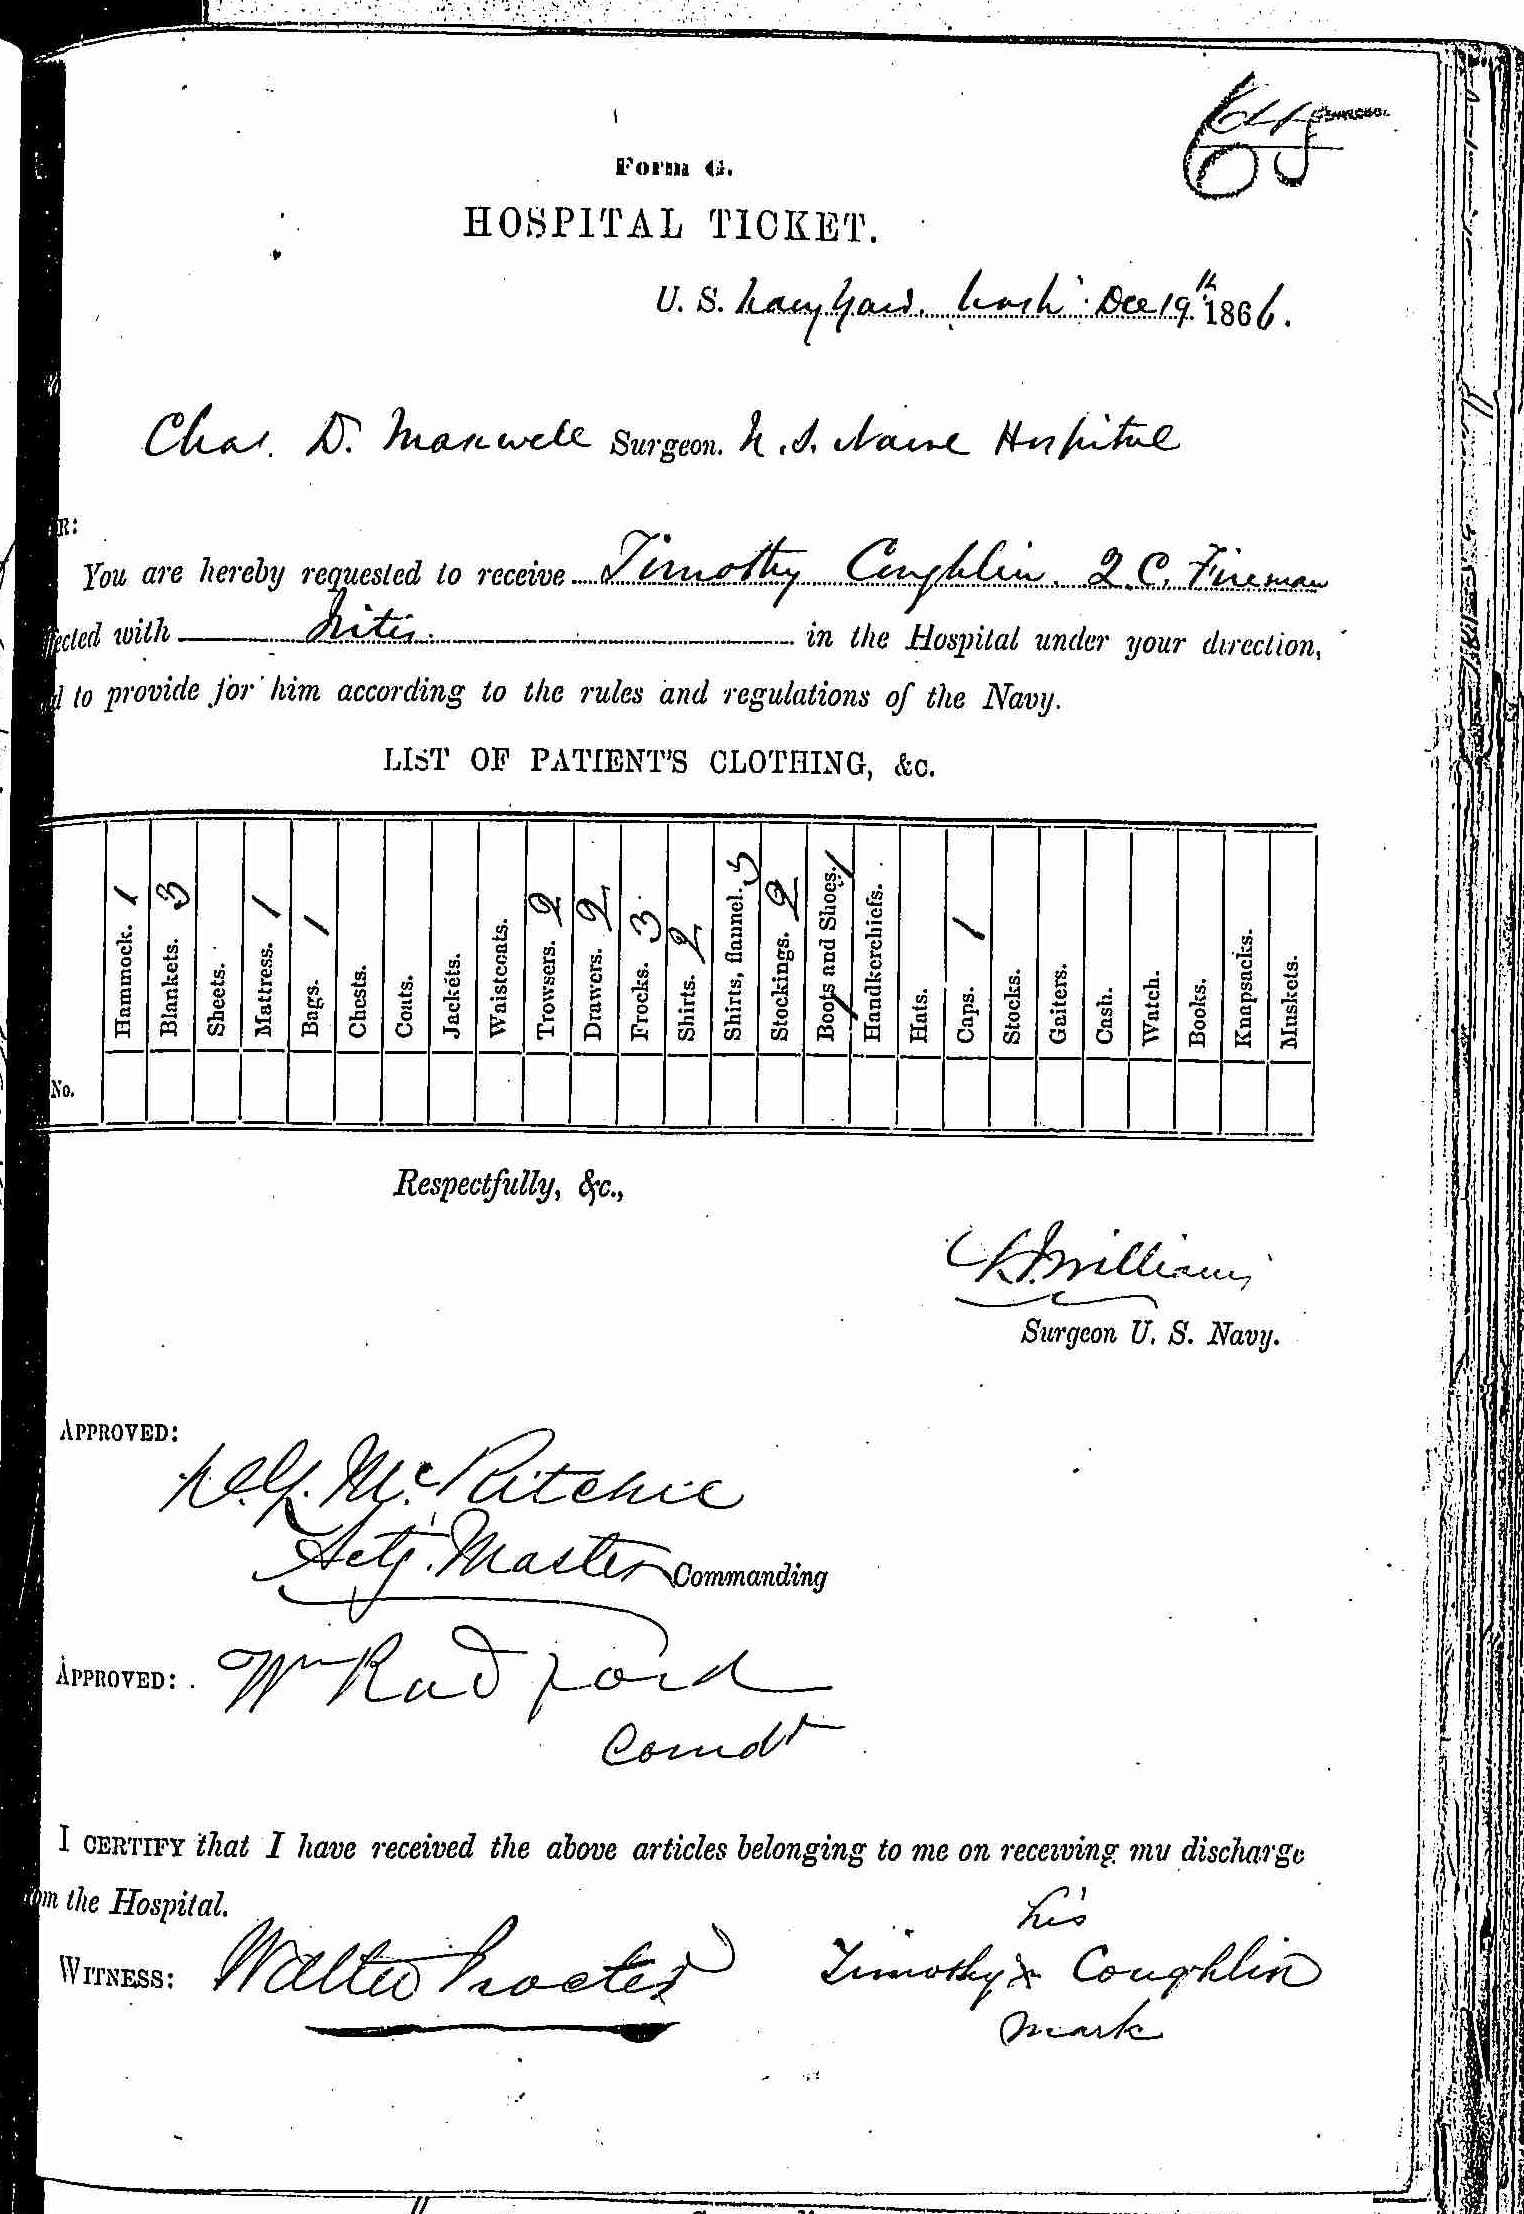 65
Form G.
HOSPITAL TICKET.
U. S. Navy Yard, Wash. Dec 19th 1866.
Chas. D. Maxwell Surgeon. U. S. Naval Hospital
R:
You are hereby requested to receive Timothy Coughlin. 2 C. Fireman
fected with Iritis. in the Hospital under your direction,
d to provide for him according to the rules and regulations of the Navy.
LIST OF PATIENT'S CLOTHING, &c.
Hammock. 1
Blankets. 3
Sheets.
Mattress. 1
Bags. 1
Chests.
Coats.
Jackets.
Waistcoats.
Trowsers. 2
Drawers. 2
Frocks. 3
Shirts. 2
Shirts, flannel. 3
Stockings. 2
Boots and Shoes. 1/1
Handkerchiefs.
Hats.
Caps. 1
Stocks.
Gaiters.
Cash.
Watch.
Books.
Knapsacks.
Muskets.
No.
Respectfully, &c.,
Williams
Surgeon U. S. Navy.
APPROVED:
D. G. McRitchie
Actg. Master Commanding
APPROVED: Wm Radford
Comdt
I CERTIFY that I have received the above articles belonging to me on receiving my discharge
om the Hospital.
his
WITNESS: Walter Procter Timothy x Coughlin
mark